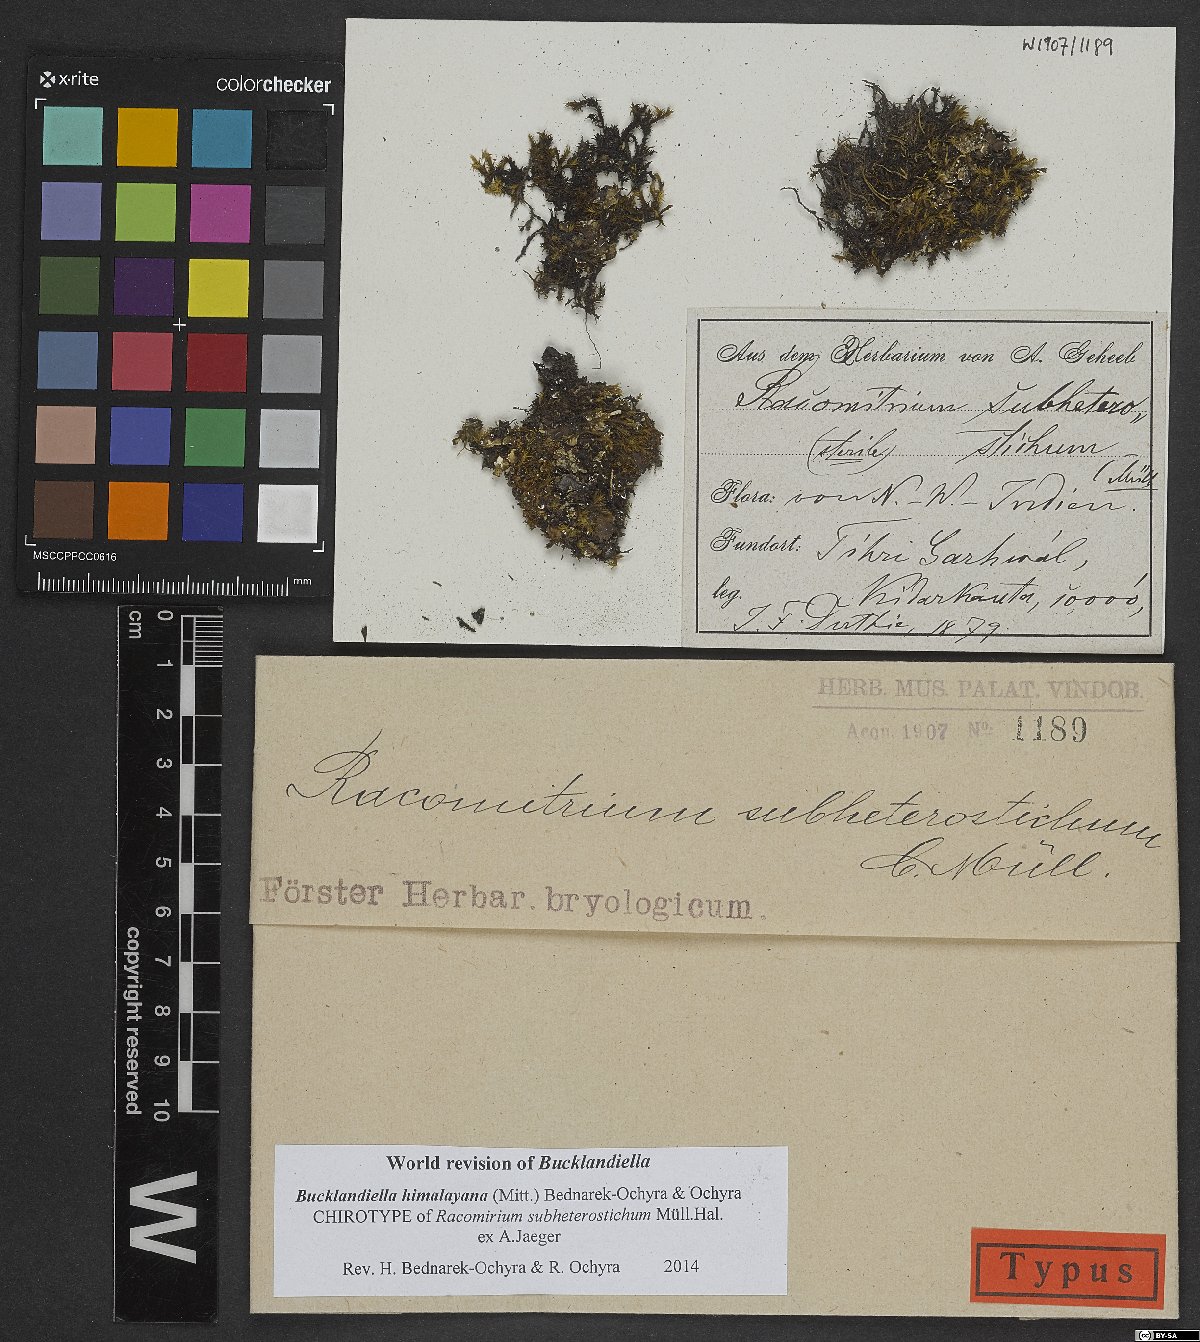 x-rite
colorchecker
MSCCPFCC0616
mm
W1907/1189
Aus dem Herbarium von A. Geheeb
Racomitrium subhetero„
(sterile) stichum
(Müll
Flora: von N.-W-Indien.
Fundort: Tihri Garhwál,
leg. Kidarkanta, 10000',
J. F. Duthie, 1879
cm
0
1
2
3
4
5
6
7
8
9
10
copyright reserved
W
HERB. MUS. PALAT. VINDOB.
Acqu. 1907 No. 1189
Racomitrium subheterostichum
C. Müll.
Förster Herbar. bryologicum.
World revision of Bucklandiella
Bucklandiella himalayana (Mitt.) Bednarek-Ochyra & Ochyra
CHIROTYPE of Racomirium subheterostichum Müll.Hal.
ex A.Jaeger
Rev. H. Bednarek-Ochyra & R. Ochyra 2014
Typus
cc BY-SA